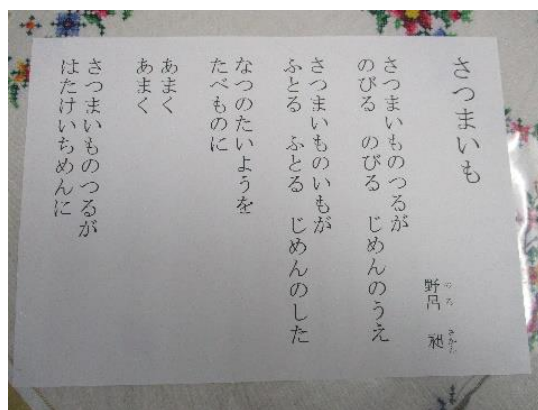 さつまいも
野呂 昶
のろ さかん
さつまいものつるが
のびる のびる じめんのうえ
さつまいものいもが
ふとる ふとる じめんのした
なつのたいようを
たべものに
あまく
あまく
さつまいものつるが
はたけいちめんに